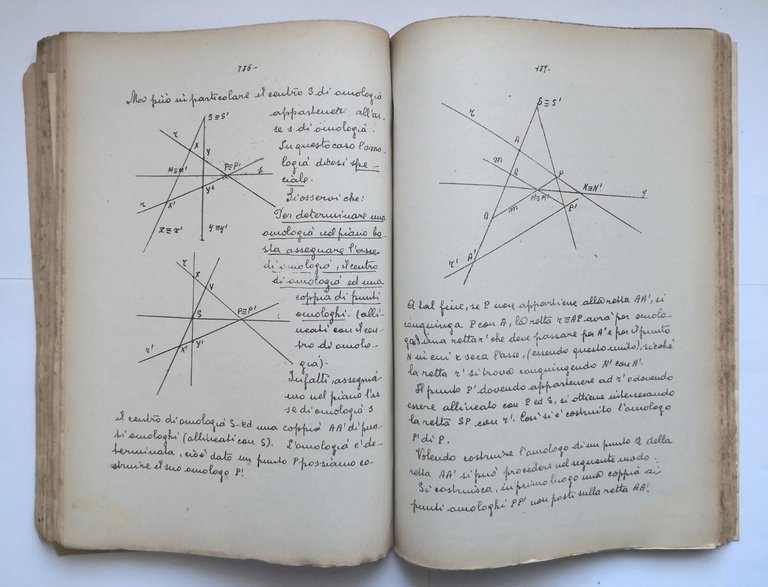 186-
Ma può in particolare il centro S di omologia
appartenere all'as-
se s di omologia.
In questo caso l'omo-
logia dicesi spe-
ciale.
Si osservi che:
Per determinare una
omologia nel piano ba-
sta assegnare l'asse
di omologia, il centro
di omologia ed una
coppia di punti
omologhi. (alli-
neati con il cen-
tro di omolo-
gia).
Infatti, assegnia-
mo nel piano l'as
se di omologia s
il centro di omologia S ed una coppia AA' di pun-
ti omologhi (allineati con S). L'omologia è de-
terminata, cioè dato un punto P possiamo co-
struire il suo omologo P'.
S≡S'
r
x
y
M≡M'
P≡P'
s
r
X'
Y'
x≡x'
y≡y'
X
Y
S
P≡P'
s
r'
X'
Y'
187-
S≡S'
r
A
m
Q
P
M≡M'
N≡N'
Q
m
P'
r'
A'
A tal fine, se P non appartiene alla retta AA', si
congiunga P con A, la retta r≡AP avrà per omolo-
ga una retta r' che deve passare per A' e per il punto
N in cui r seca l'asse, (essendo questo unito), sicchè
la retta r' si trova congiungendo N' con A'.
Il punto P' dovendo appartenere ad r' e dovendo
essere allineato con P ed S, si ottiene intersecando
la retta SP con r'. Così si è costruito l'omologo
P' di P.
Volendo costruire l'omologo di un punto Q della
retta AA' si può procedere nel seguente modo:
Si costruisca, in primo luogo una coppia di
punti omologhi PP' non posti sulla retta AA'.